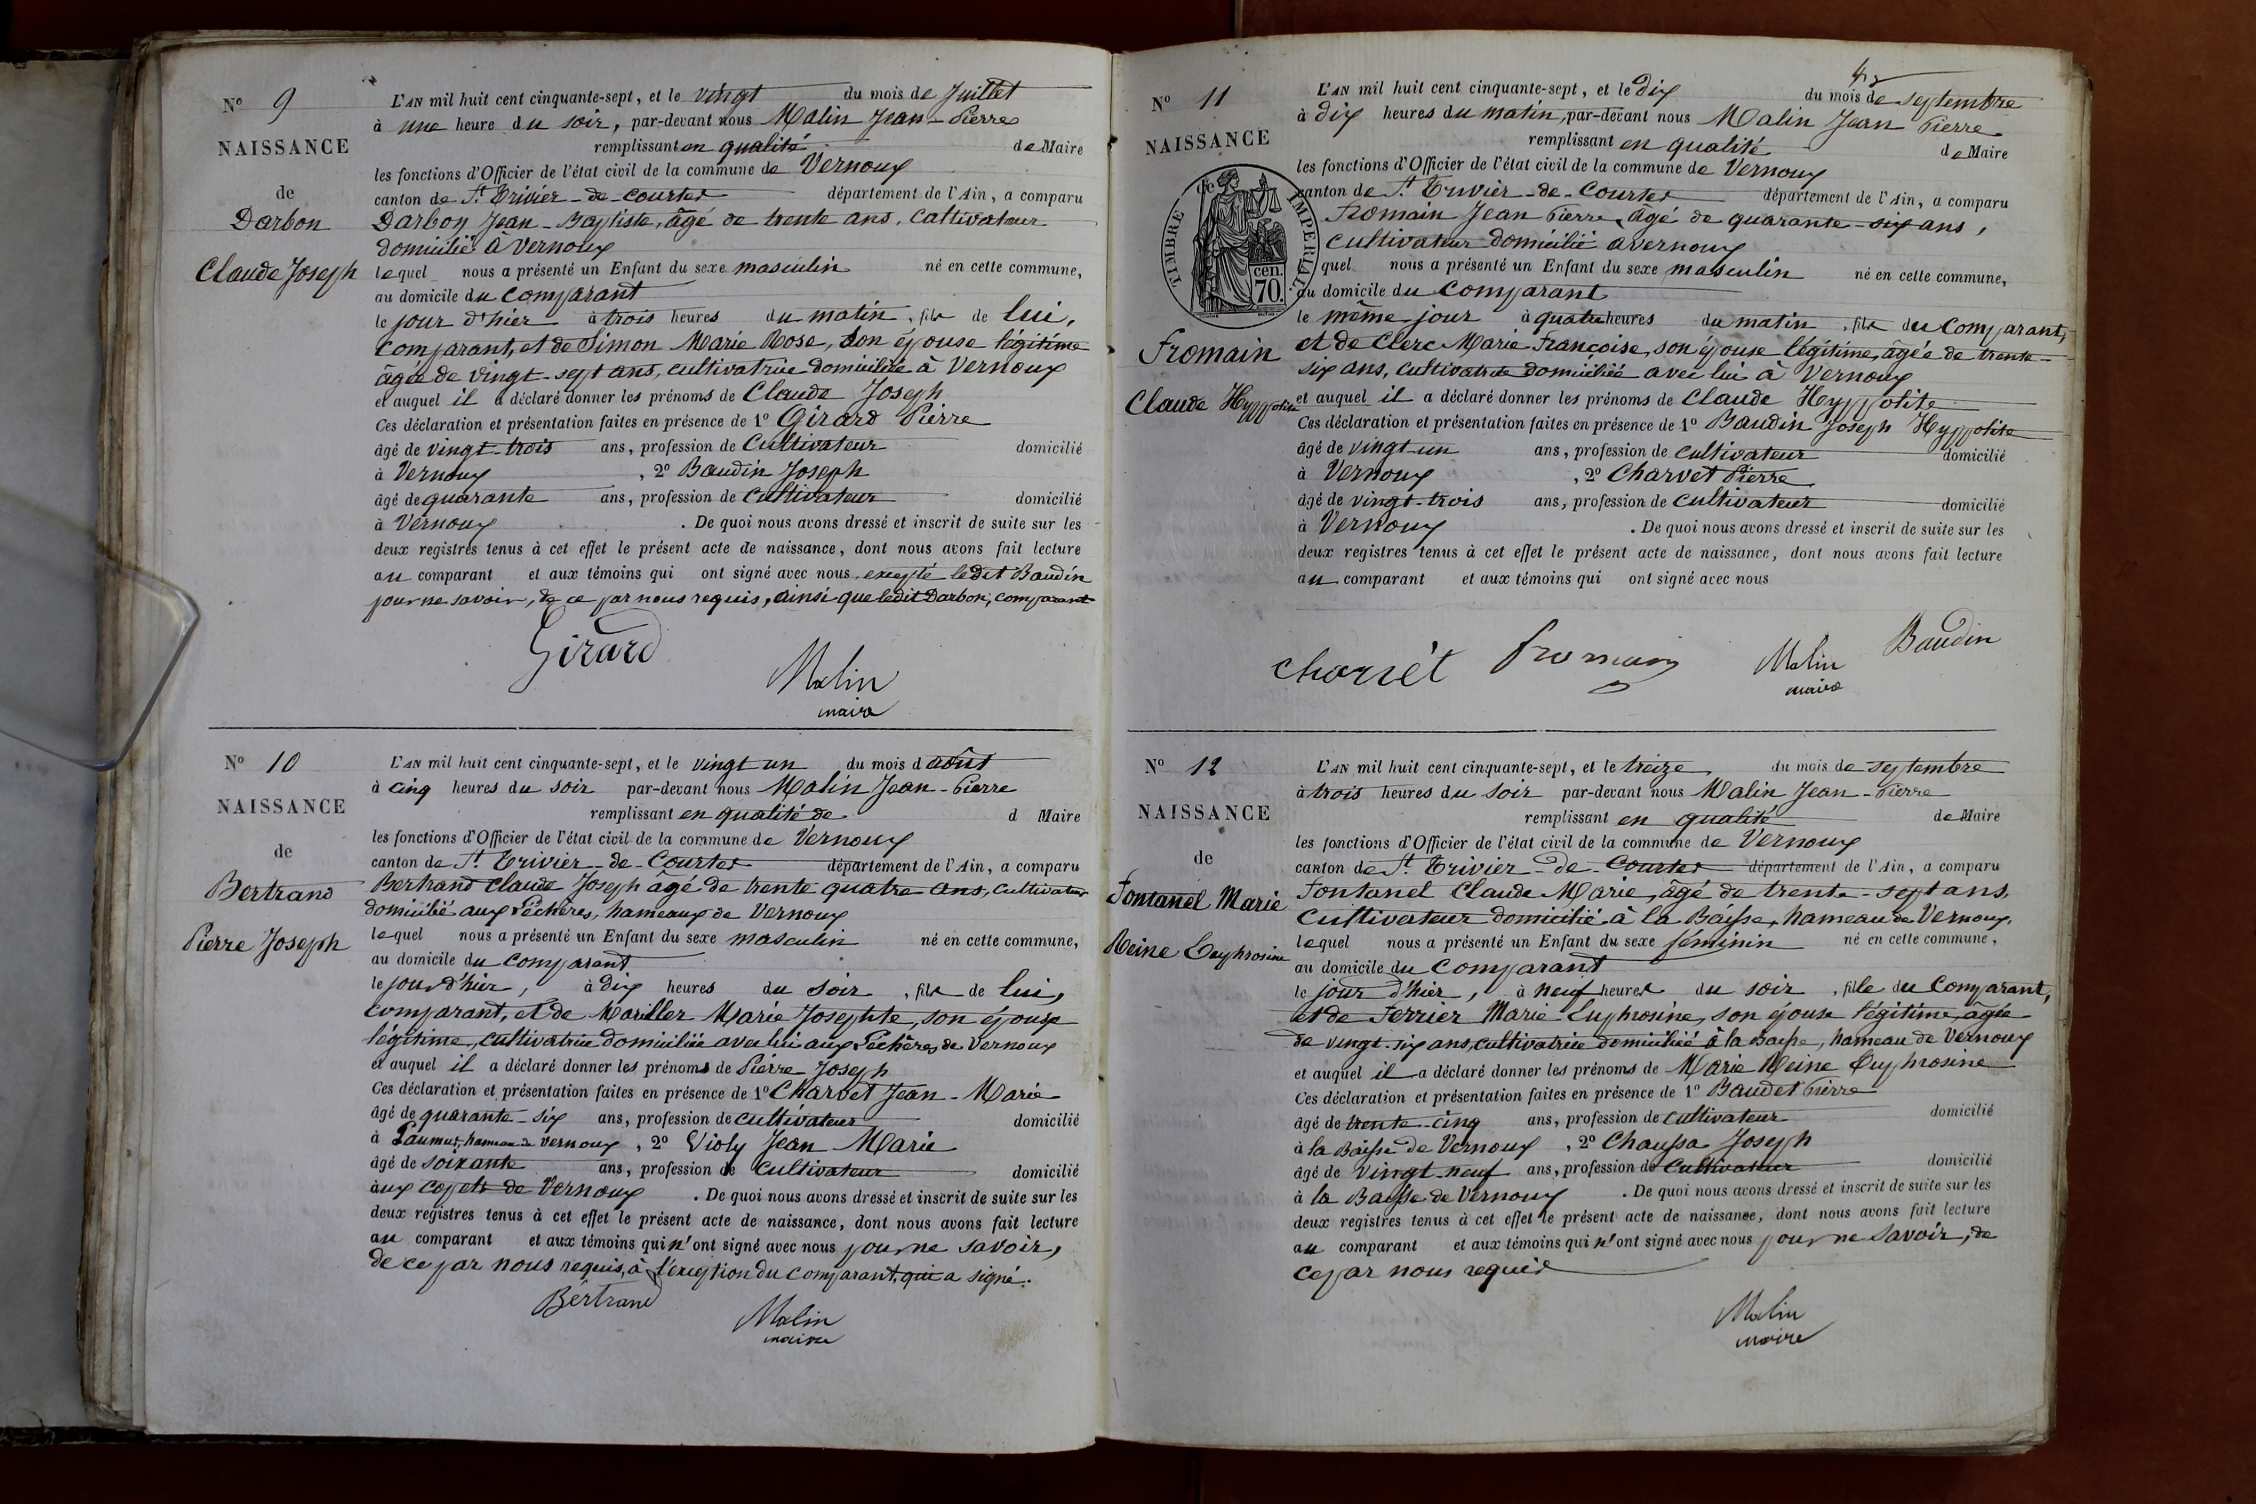 Nº 9
NAISSANCE
de
Darbon
Claude Joseph
L'AN mil huit cent cinquante-sept, et le vingt du mois de Juillet
à une heure du soir, par-devant nous Malin Jean-Pierre
remplissant en qualité de Maire
les fonctions d'Officier de l'état civil de la commune de Vernoux
canton de St Trivier-de-Courtes département de l'Ain, a comparu
Darbon Jean-Baptiste, âgé de trente ans, Cultivateur
domicilié à Vernoux
lequel nous a présenté un Enfant du sexe masculin né en cette commune,
au domicile du Comparant
le jour d'hier à trois heures du matin, fils de lui,
comparant, et de Simon Marie Rose, son épouse légitime
âgée de vingt-sept ans, cultivatrice domiciliée à Vernoux
et auquel il a déclaré donner les prénoms de Claude Joseph
Ces déclaration et présentation faites en présence de 1º Girard Pierre
âgé de vingt-trois ans, profession de Cultivateur domicilié
à Vernoux, 2º Baudin Joseph
âgé de quarante ans, profession de Cultivateur domicilié
à Vernoux. De quoi nous avons dressé et inscrit de suite sur les
deux registres tenus à cet effet le présent acte de naissance, dont nous avons fait lecture
au comparant et aux témoins qui ont signé avec nous, excepté ledit Baudin
pour ne savoir, de ce par nous requis, ainsi que ledit Darbon, comparant
Girard
Malin
maire
Nº 10
NAISSANCE
de
Bertrand
Pierre Joseph
L'AN mil huit cent cinquante-sept, et le vingt un du mois d août
à cinq heures du soir par-devant nous Malin Jean-Pierre
remplissant en qualité de d Maire
les fonctions d'Officier de l'état civil de la commune de Vernoux
canton de St Trivier-de-Courtes département de l'Ain, a comparu
Bertrand Claude Joseph âgé de trente quatre ans, cultivateur
domicilié aux Pechères, hameaux de Vernoux
lequel nous a présenté un Enfant du sexe masculin né en cette commune,
au domicile du Comparant
le jour d'hier, à dix heures du soir, fils de lui,
comparant, et de Mariller Marie Josephte, son épouse
légitime, cultivatrice domiciliée avec lui aux Pechères de Vernoux
et auquel il a déclaré donner les prénoms de Pierre Joseph
Ces déclaration et présentation faites en présence de 1º Charvet Jean-Marie
âgé de quarante-six ans, profession de cultivateur domicilié
à hameau de vernoux, 2º Violy Jean Marie
âgé de soixante ans, profession de cultivateur domicilié
aux de Vernoux. De quoi nous avons dressé et inscrit de suite sur les
deux registres tenus à cet effet le présent acte de naissance, dont nous avons fait lecture
au comparant et aux témoins qui n'ont signé avec nous pour ne savoir,
de ce par nous requis, à l'exception du comparant, qui a signé.
Bertrand
Malin
maire
Nº 11
NAISSANCE
de
TIMBRE IMPERIAL
cen.
70.
Fromain
Claude Hyppolite
L'AN mil huit cent cinquante-sept, et le dix du mois de septembre
à dix heures du matin, par-devant nous Malin Jean Pierre
remplissant en qualité de Maire
les fonctions d'Officier de l'état civil de la commune de Vernoux
canton de St Trivier-de-Courtes département de l'Ain, a comparu
Fromain Jean Pierre, âgé de quarante-six ans,
cultivateur domicilié à vernoux
quel nous a présenté un Enfant du sexe masculin né en cette commune,
au domicile du comparant
le même jour à quatre heures du matin, fils du comparant,
et de Clerc Marie Françoise, son épouse légitime, âgée de trente-
six ans, cultivatrice domiciliée avec lui à Vernoux
et auquel il a déclaré donner les prénoms de Claude Hyppolite
Ces déclaration et présentation faites en présence de 1º Baudin Joseph Hyppolite
âgé de vingt-un ans, profession de cultivateur domicilié
à Vernoux, 2º Charvet Pierre
âgé de vingt-trois ans, profession de cultivateur domicilié
à Vernoux. De quoi nous avons dressé et inscrit de suite sur les
deux registres tenus à cet effet le présent acte de naissance, dont nous avons fait lecture
au comparant et aux témoins qui ont signé avec nous
Charvet Fromain Malin Baudin
maire
Nº 12
NAISSANCE
de
Fontanel Marie
Reine Euphrosine
L'AN mil huit cent cinquante-sept, et le treize du mois de septembre
à trois heures du soir par-devant nous Malin Jean-Pierre
remplissant en qualité de Maire
les fonctions d'Officier de l'état civil de la commune de Vernoux
canton de St Trivier-de-Courtes département de l'Ain, a comparu
Fontanel Claude Marie, âgé de trente-sept ans,
Cultivateur domicilié à la Baisse, hameau de Vernoux,
lequel nous a présenté un Enfant du sexe féminin né en cette commune,
au domicile du Comparant
le jour d'hier, à neuf heures du soir, fille du Comparant,
et de Ferrier Marie Euphrosine, son épouse légitime, âgée
de vingt-six ans, cultivatrice domiciliée à la Baisse, hameau de Vernoux
et auquel il a déclaré donner les prénoms de Marie Reine Euphrosine
Ces déclaration et présentation faites en présence de 1º Baudet Pierre
âgé de trente-cinq ans, profession de cultivateur domicilié
à la Baisse de Vernoux, 2º Chaussa Joseph
âgé de vingt-neuf ans, profession de Cultivateur domicilié
à la Baisse de Vernoux. De quoi nous avons dressé et inscrit de suite sur les
deux registres tenus à cet effet le présent acte de naissance, dont nous avons fait lecture
au comparant et aux témoins qui n'ont signé avec nous pour ne savoir, de
ce par nous requis
Malin
maire